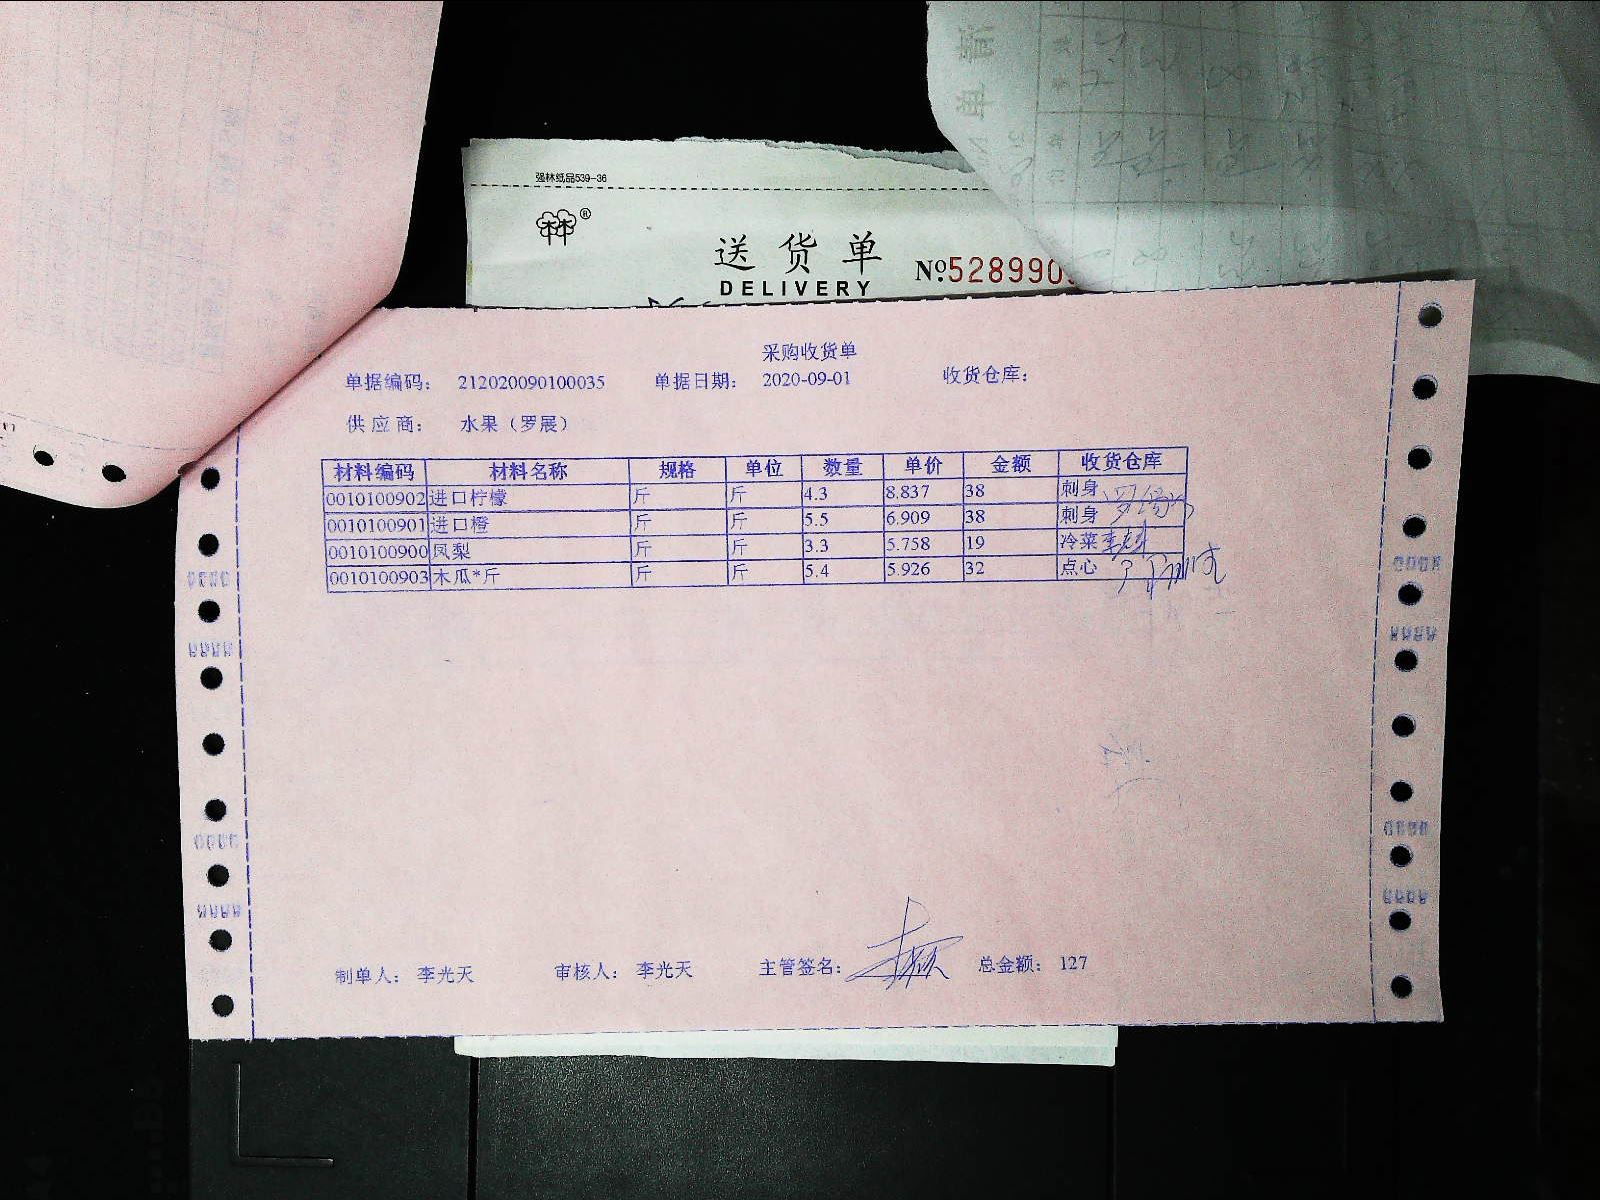 强林纸品539-36
林林®
送货单
DELIVERY
№.528990
采购收货单
单据编码： 212020090100035 单据日期： 2020-09-01 收货仓库：
供应商： 水果（罗展）
材料编码 材料名称 规格 单位 数量 单价 金额 收货仓库
0010100902 进口柠檬 斤 斤 4.3 8.837 38 刺身
0010100901 进口橙 斤 斤 5.5 6.909 38 刺身
0010100900 凤梨 斤 斤 3.3 5.758 19 冷菜
0010100903 木瓜*斤 斤 斤 5.4 5.926 32 点心
制单人： 李光天 审核人： 李光天 主管签名： 总金额： 127